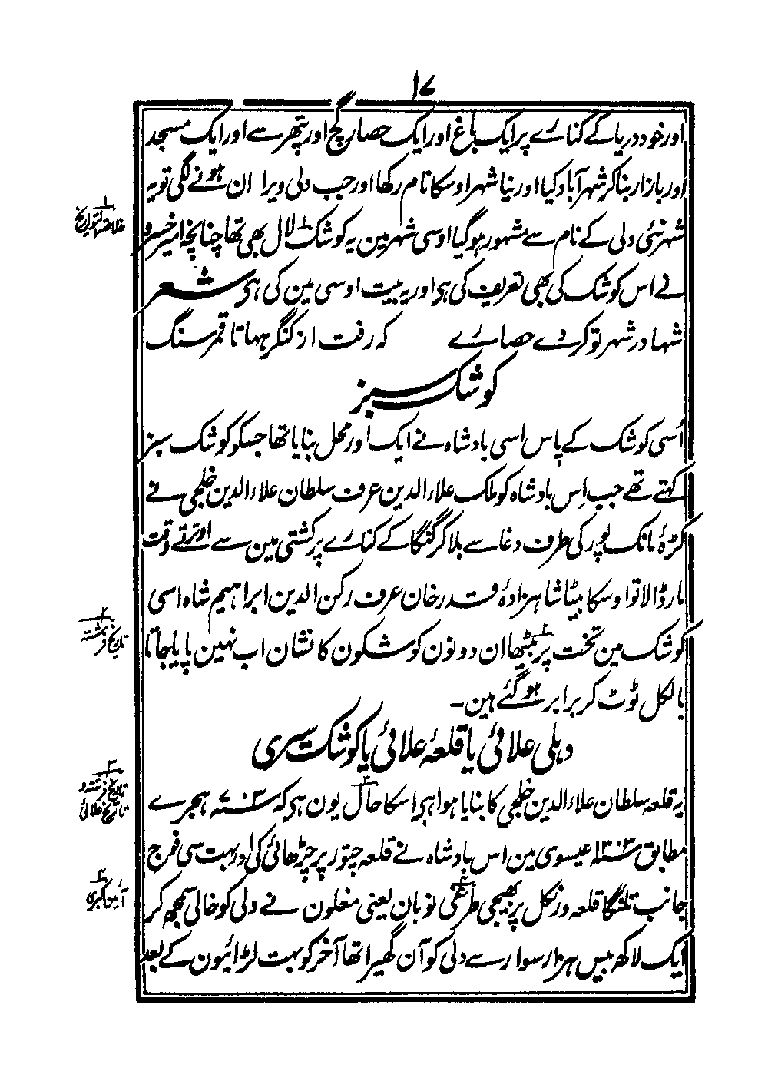 ۱۷
اور خود دریا کے کنارے پر ایک باغ اور ایک حصار گچ اور پتھر سے اور ایک مسجد
اور بازار بنا کر شہر آباد کیا اور نیا شہر اوسکا نام رکھا اور جب دلی ویران ہونے لگی تو یہ
شہر نئی دلی کے نام سے مشہور ہو گیا اوسی شہر مین یہ کوشک لال بھی تھا چنانچہ امیر خسرو
خلاصة التواریخ
نے اس کوشک کی بھی تعریف کی ہی اور یہ بیت اوسی مین کی ہی شعر
شہا در شہر نو کردے حصارے که رفت از کنگرہا تا قمر سنگ
کوشک سبز
اُسی کوشک کے پاس اسی بادشاہ نے ایک اور محل بنایا تھا جسکو کوشک سبز
کہتے تھے جب اِس بادشاہ کو ملک علاء الدین عرف سلطان علاء الدین خلجی نے
کڑہ مانک پور کی طرف دغا سے بلا کر گنگا کے کنارے پر کشتی مین سے اوترتے وقت
مار ڈالا تو اوسکا بیٹا شاہزادہ قدر خان عرف رکن الدین ابراہیم شاہ اسی
کوشک مین تخت پر بیٹھا ان دونون کوشکون کا نشان اب نہین پایا جاتا
تاریخ فرشتہ
بالکل ٹوٹ کر برابر ہو گئے ہین۔
دہلی علائی یا قلعۂ علائی یا کوشک سیری
یہ قلعہ سلطان علاء الدین خلجی کا بنایا ہوا ہی اسکا حال یون ہی کہ ۷۰۳ سنہ ہجرے
تاریخ فرشتہ و
تاریخ علائی
مطابق ۱۳۰۳ سنہ عیسوی مین اس بادشاہ نے قلعہ چتور پر چڑھائی کی اور بہت سی فوج
جانب تلنگا قلعہ ورنکل پر بھیجی طرغی نویان یعنی مغلون نے دلی کو خالی سمجھ کر
آئین اکبری
ایک لاکھ بیس ہزار سوار سے دلی کو آن گھیرا تھا آخر کو بہت لڑائیون کے بعد